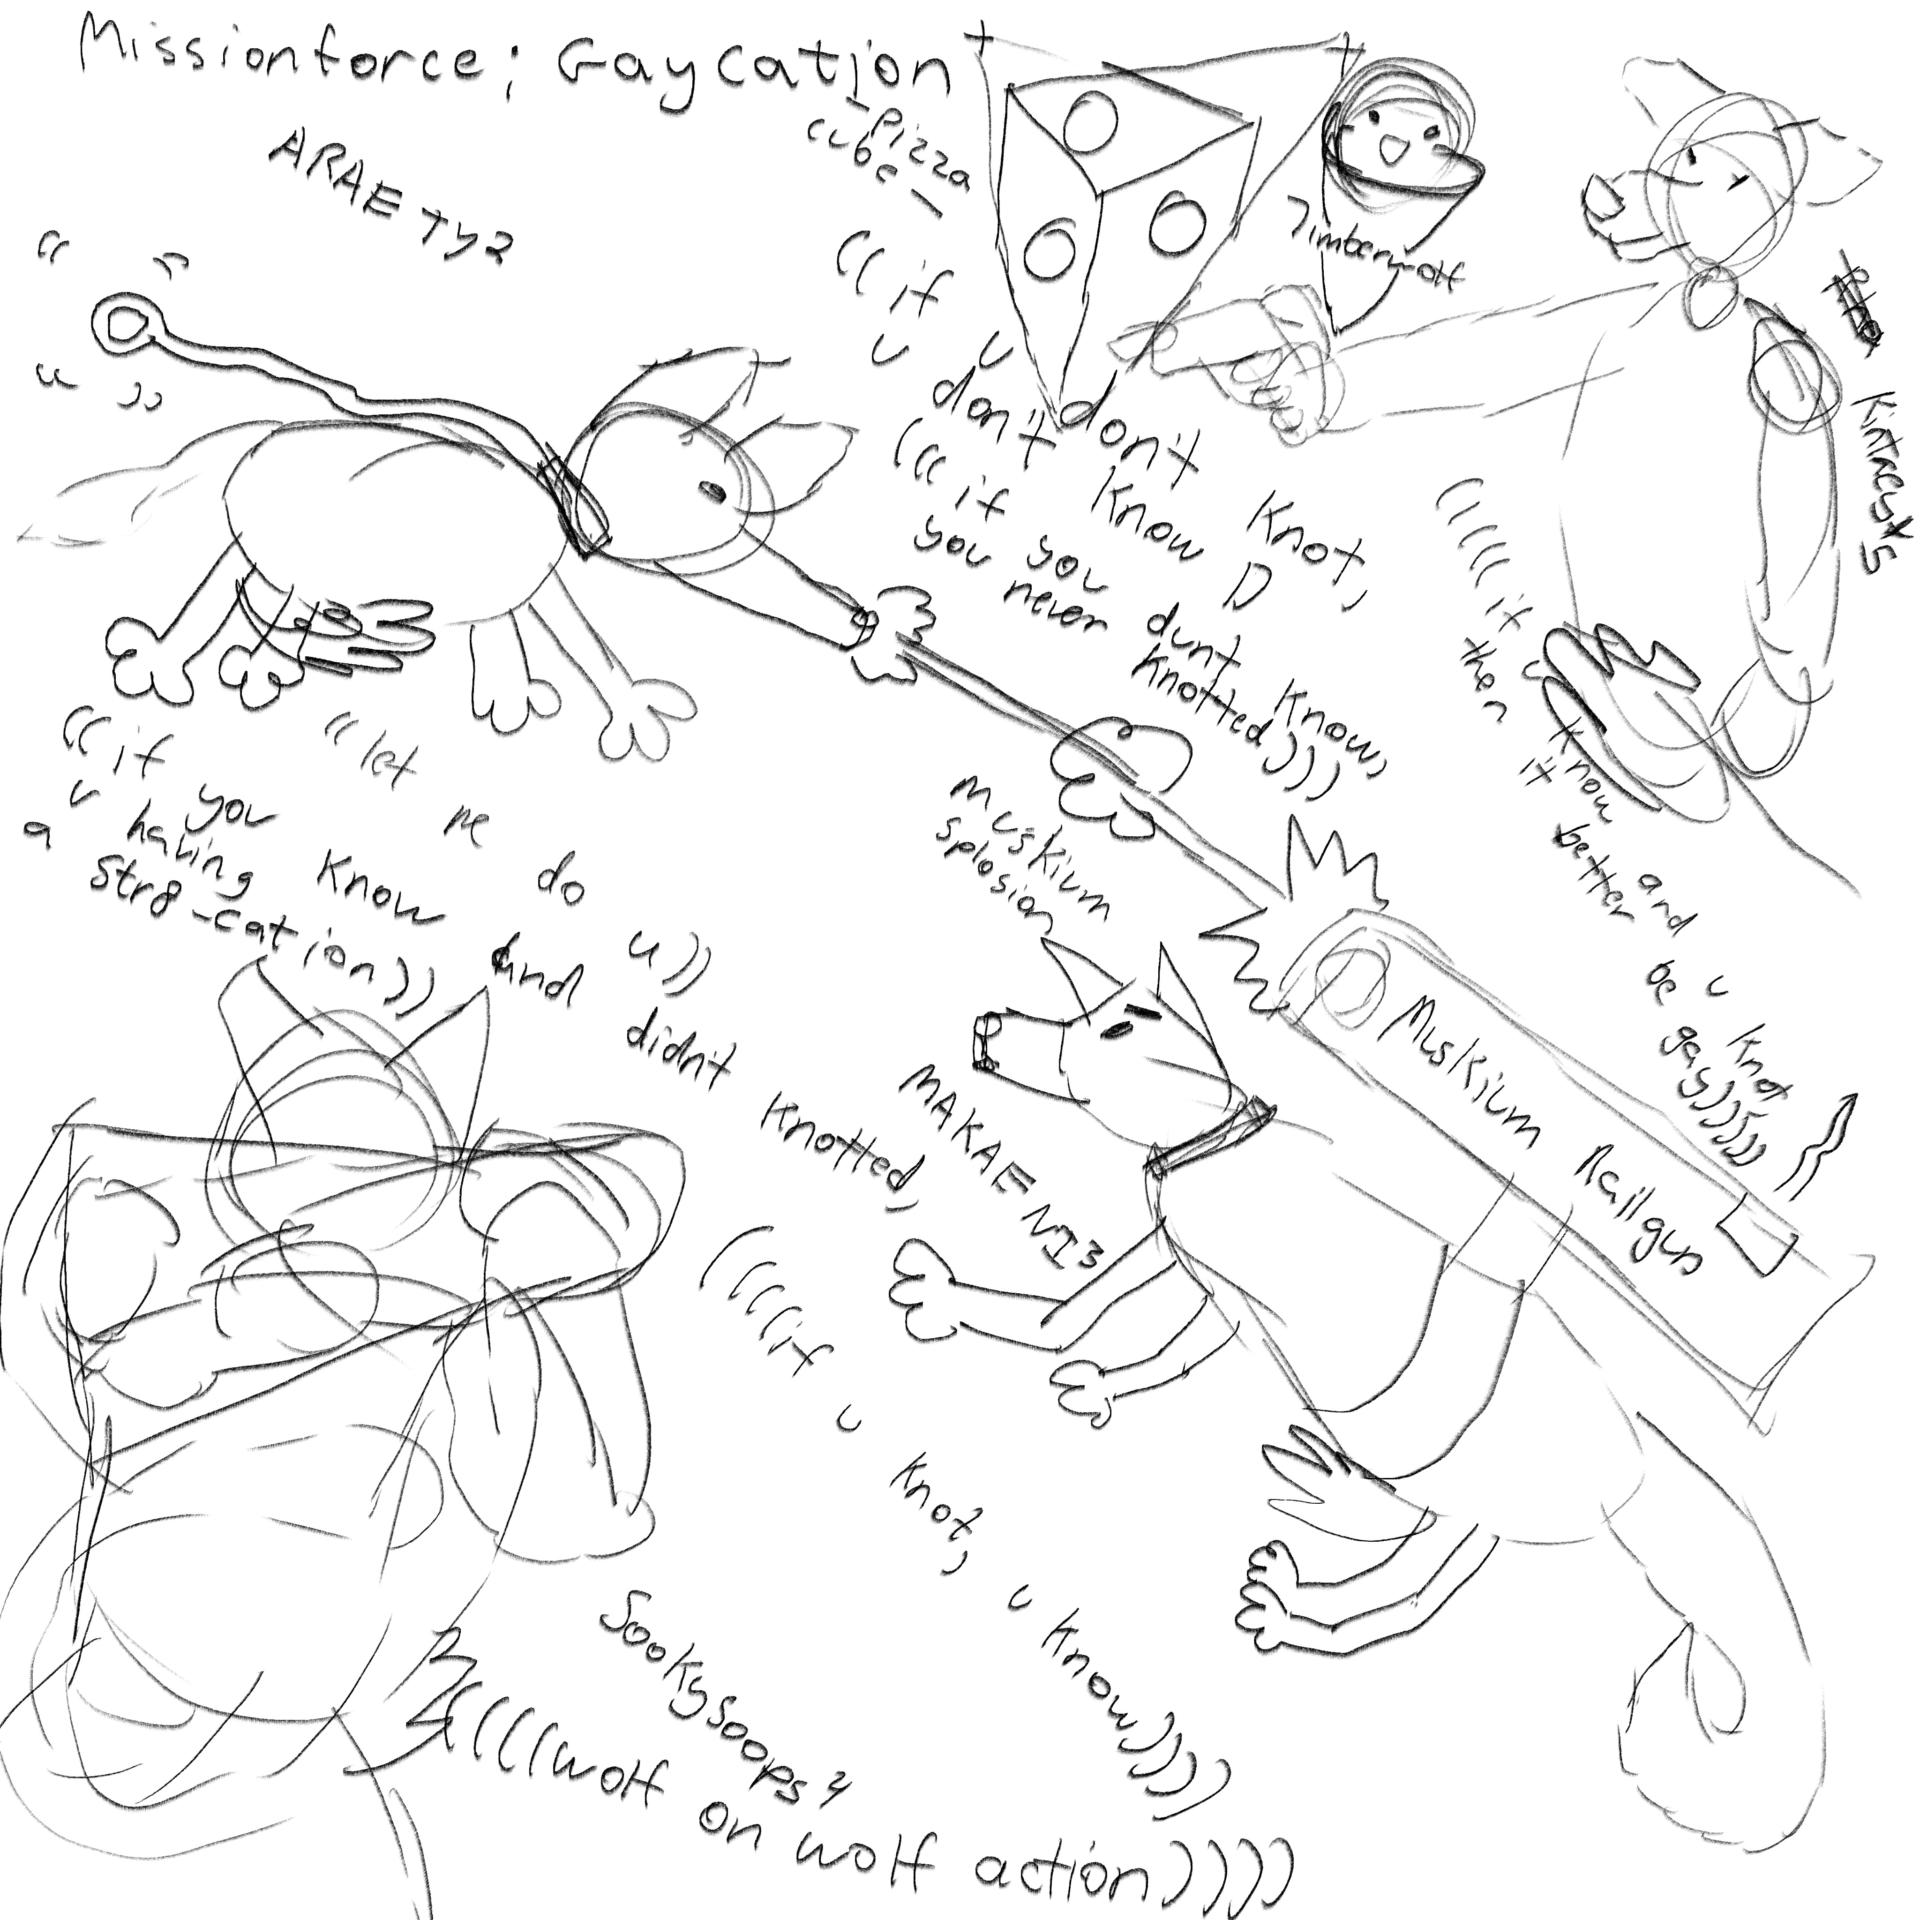 Missionforce; Gaycation
-Pizza
cube-
ARAE TY2
Timberwolf
Kintacyxs
((if u don't knot,
u don't know D
(((if you dunt know,
you never knotted)))
(((((if u know and u knot
then it better be gay)))))
muskium
splosion
((let me do u))
((if you know and didn't knotted,
u having
a str8-cation))
MAKAE NI3
Muskium Railgun
((((if u knot, u know))))
Sookysoops4
((((wolf on wolf action))))